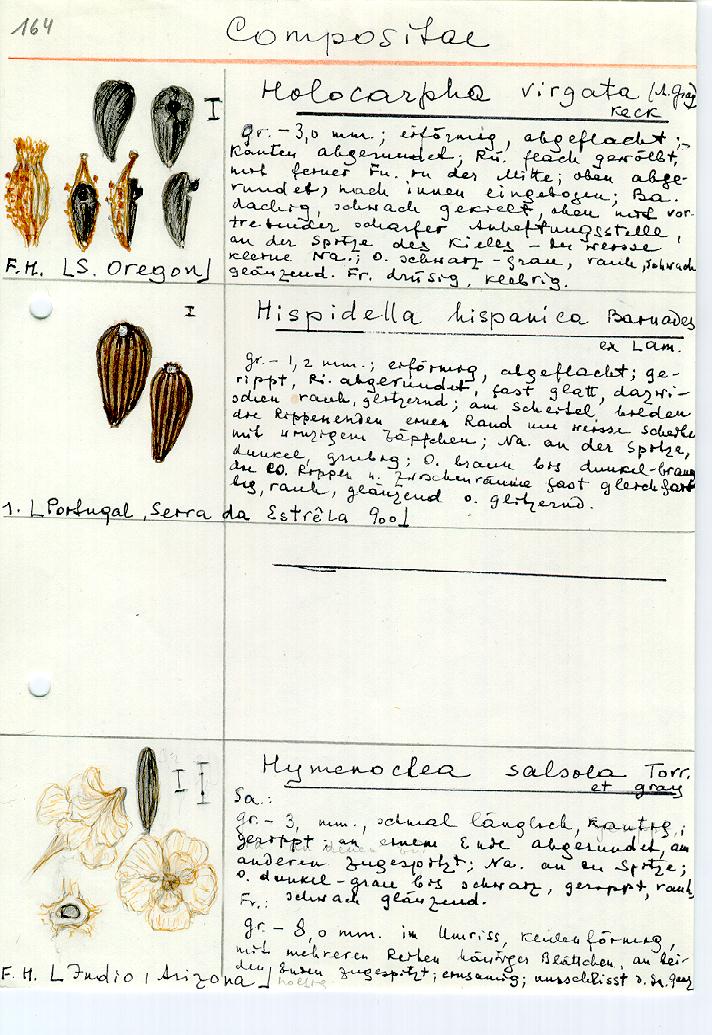 164
Compositae
Holocarpha virgata (A. Gray)
Keck
gr. - 3,0 mm.; eiförmig, abgeflacht;
Kanten abgerundet; Rü. flach gewölbt,
mit feiner Fu. in der Mitte; oben abge-
rundet, nach innen eingebogen; Ba.
dachig, schwach gekielt, oben mit vor-
tretender scharfer Anheftungsstelle,
an der Spitze des Kieles - die weisse
kleine Na.; O. schwarz-grau, rauh, schwach
glänzend. Fr. drüsig, klebrig.
F.H. [S. Oregon]
Hispidella hispanica Barnades
ex Lam.
gr. - 1,2 mm.; eiförmig, abgeflacht; ge-
rippt, Ri. abgerundet, fast glatt, dazwi-
schen rauh, glitzernd; am Scheitel bilden
die Rippenenden einen Rand um weisse Scheibe
mit winzigem Zäpfchen; Na. an der Spitze,
dunkel, grubig; O. braun bis dunkel-braun
die 10 Rippen u. Zwischenräume fast gleichfar-
big, rauh, glänzend o. glitzernd.
1. [Portugal, Serra da Estrêla 900]
Hymenoclea salsola Torr.
et gray
Sa.:
gr. - 3, mm., schmal länglich, kantig,
gerippt, an einem Ende abgerundet, am
anderen zugespitzt; Na. an der Spitze;
O. dunkel-grau bis schwarz, gerippt, rauh,
schwach glänzend.
Fr.:
gr. - 8,0 mm. im Umriss, keulenförmig,
mit mehreren Reihen häutiger Blättchen, an bei-
den Enden zugespitzt; einsamig; umschliesst d. Sa. ganz
holzig
F.H. [Indio, Arizona]